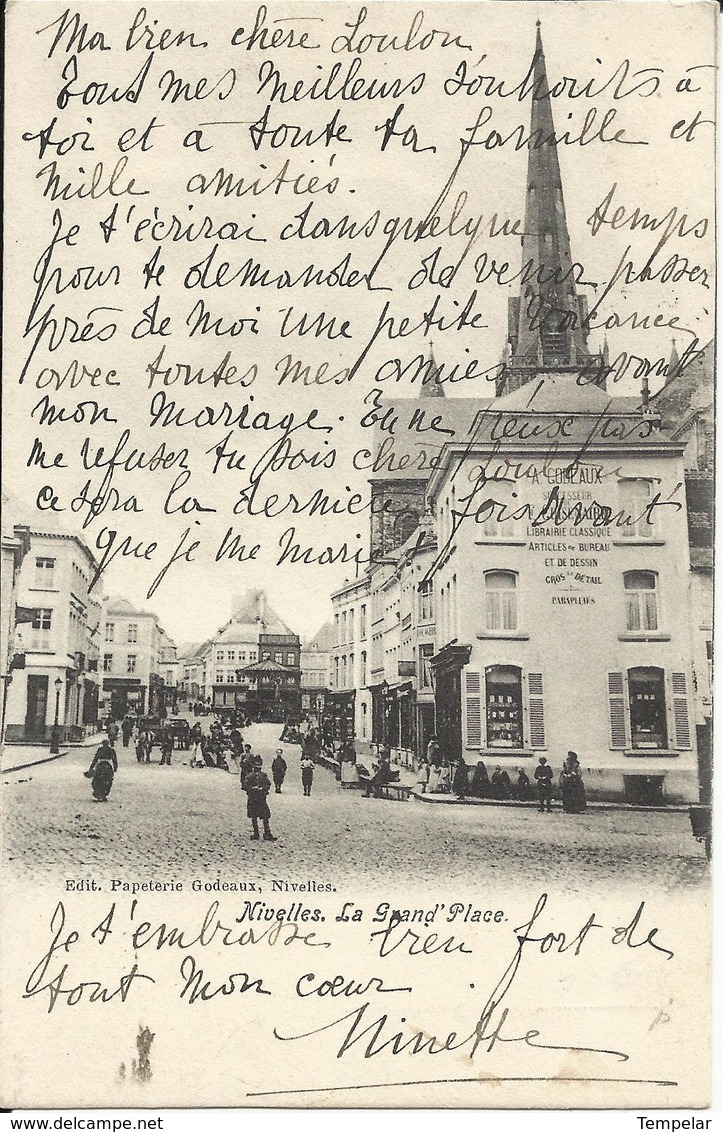 Ma bien chère Loulou,
Tous mes meilleurs souhaits à
toi et à toute ta famille et
mille amitiés.
Je t'écrirai dans quelque temps
pour te demander de venir passer
près de moi une petite vacance
avec toutes mes amies avant
mon mariage. Tu ne peux pas
me refuser tu sais chère Loulou
ce sera la dernière fois avant
que je me marie!
A. GODEAUX
SUCCESSEUR
LIBRAIRIE CLASSIQUE
ARTICLES DE BUREAU
ET DE DESSIN
GROS DÉTAIL
PARAPLUIES
Edit. Papeterie Godeaux, Nivelles.
Nivelles. La Grand'Place.
Je t'embrasse bien fort de
tout mon cœur
Ninette
Tempelar